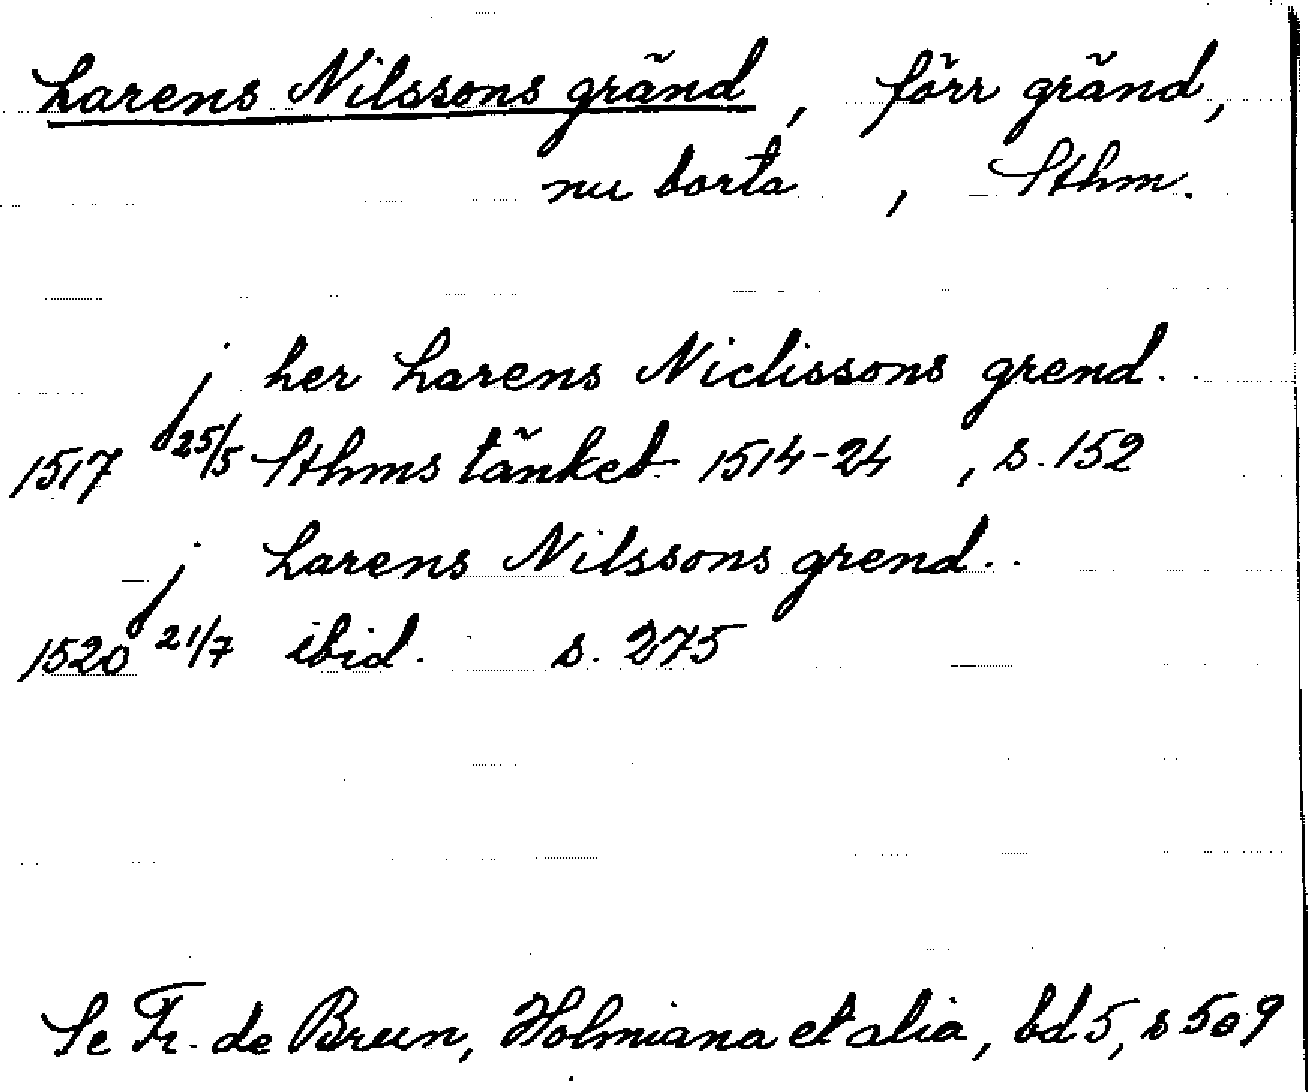 Larens Nilssons gränd, förr gränd,
nu borta, Sthm.
j her Larens Niclissons grend.
1517 25/5 Sthms tänkeb 1514-24, s. 152
j Larens Nilssons grend.
1520 21/7 ibid. s. 275
Se Fr. de Brun, Holmiana et alia, bd 5, s 509